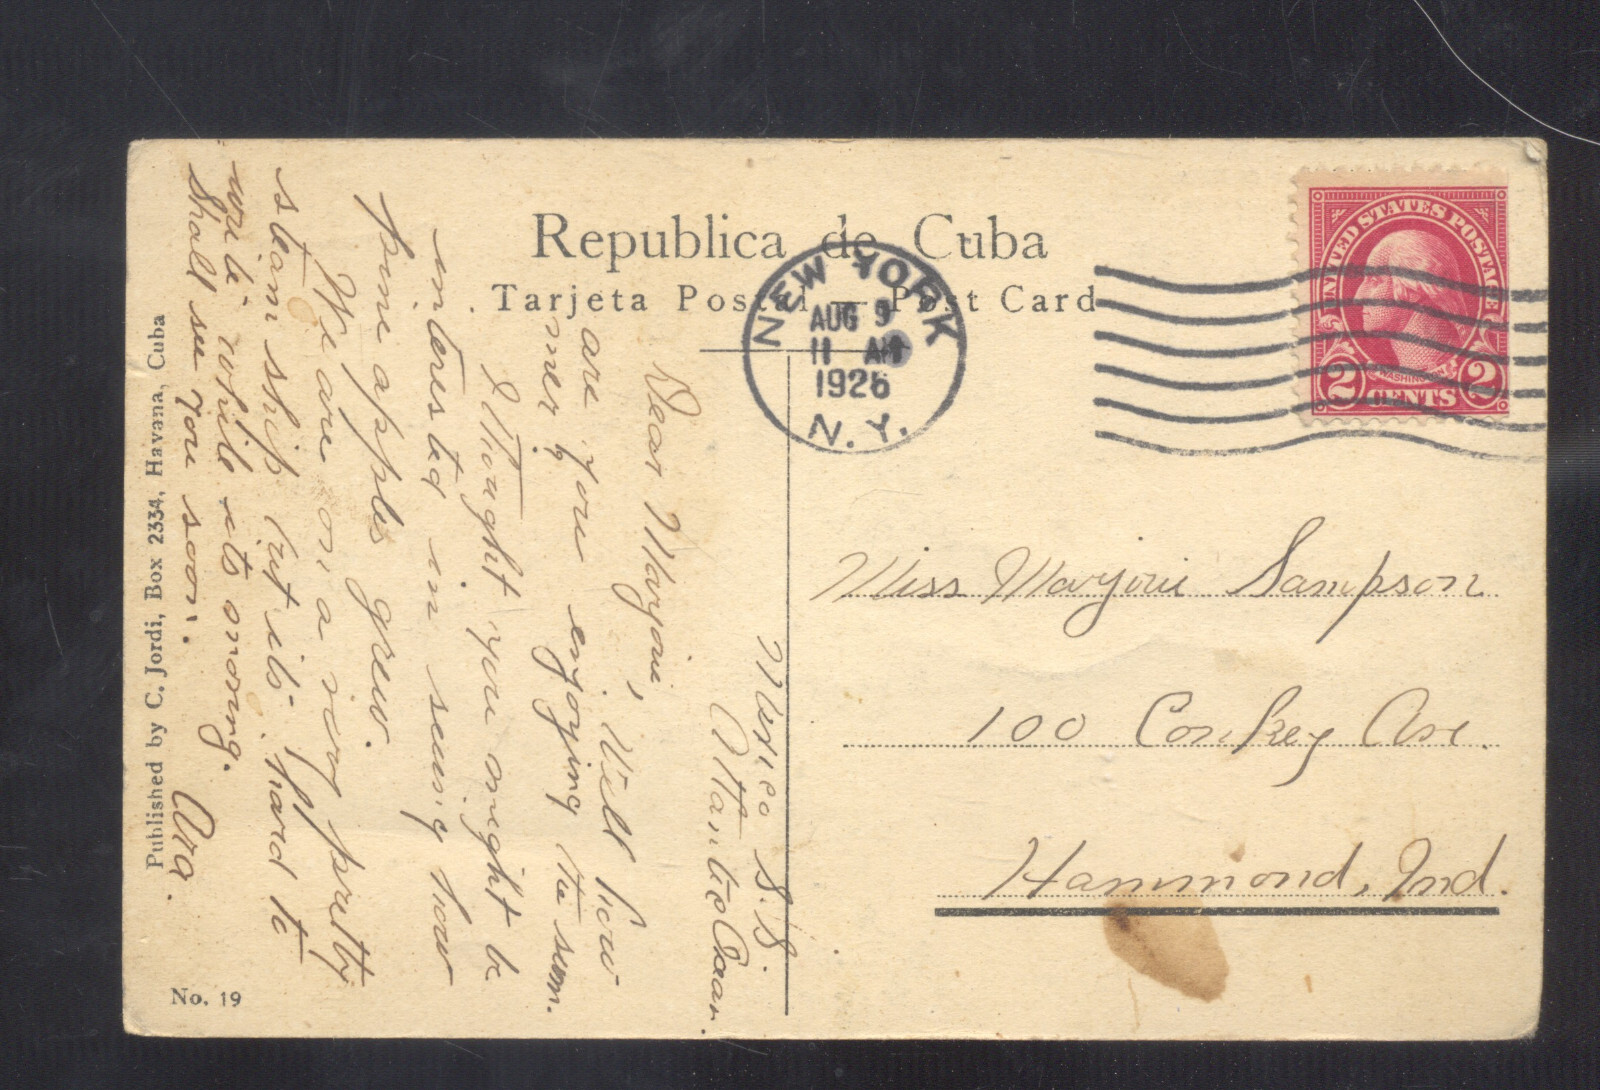 Republica de Cuba
Tarjeta Postal — Post Card
NEW YORK
AUG 9
11 AM
1926
N. Y.
UNITED STATES POSTAGE
WASHINGTON
2 CENTS 2
Mexico S.S.
Atlantic Ocean.
Dear Marjorie,
Well how
are you enjoying the sum-
mer?
I thought you might be
interested in seeing how
pine apples grew.
We are on a very pretty
steam ship but its hard to
write while its moving.
Shall see you soon.
Ava.
Miss Marjorie Sampson
100 Conkey Ave.
Hammond, Ind.
Published by C. Jordi, Box 2334, Havana, Cuba
No. 19